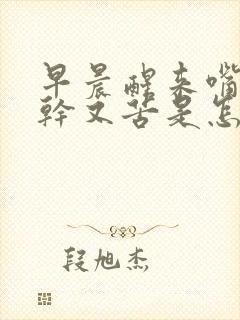 早晨醒来嘴
幹又苦是怎
段旭杰